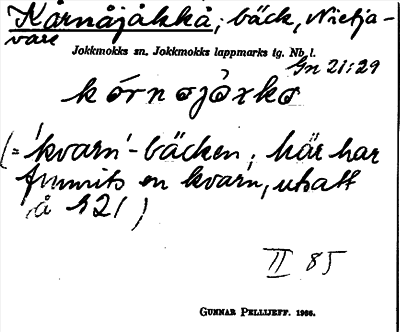 Kårnåjåkkå, bäck, Nietja-
vare
Jokkmokks sn. Jokkmokks lappmarks tg. Nb l.
Gn 21:29
kórnojåxko
(= 'kvarn'-bäcken; här har
funnits en kvarn, utsatt
på 121)
II 85
GUNNAR PELLIJEFF. 1966.